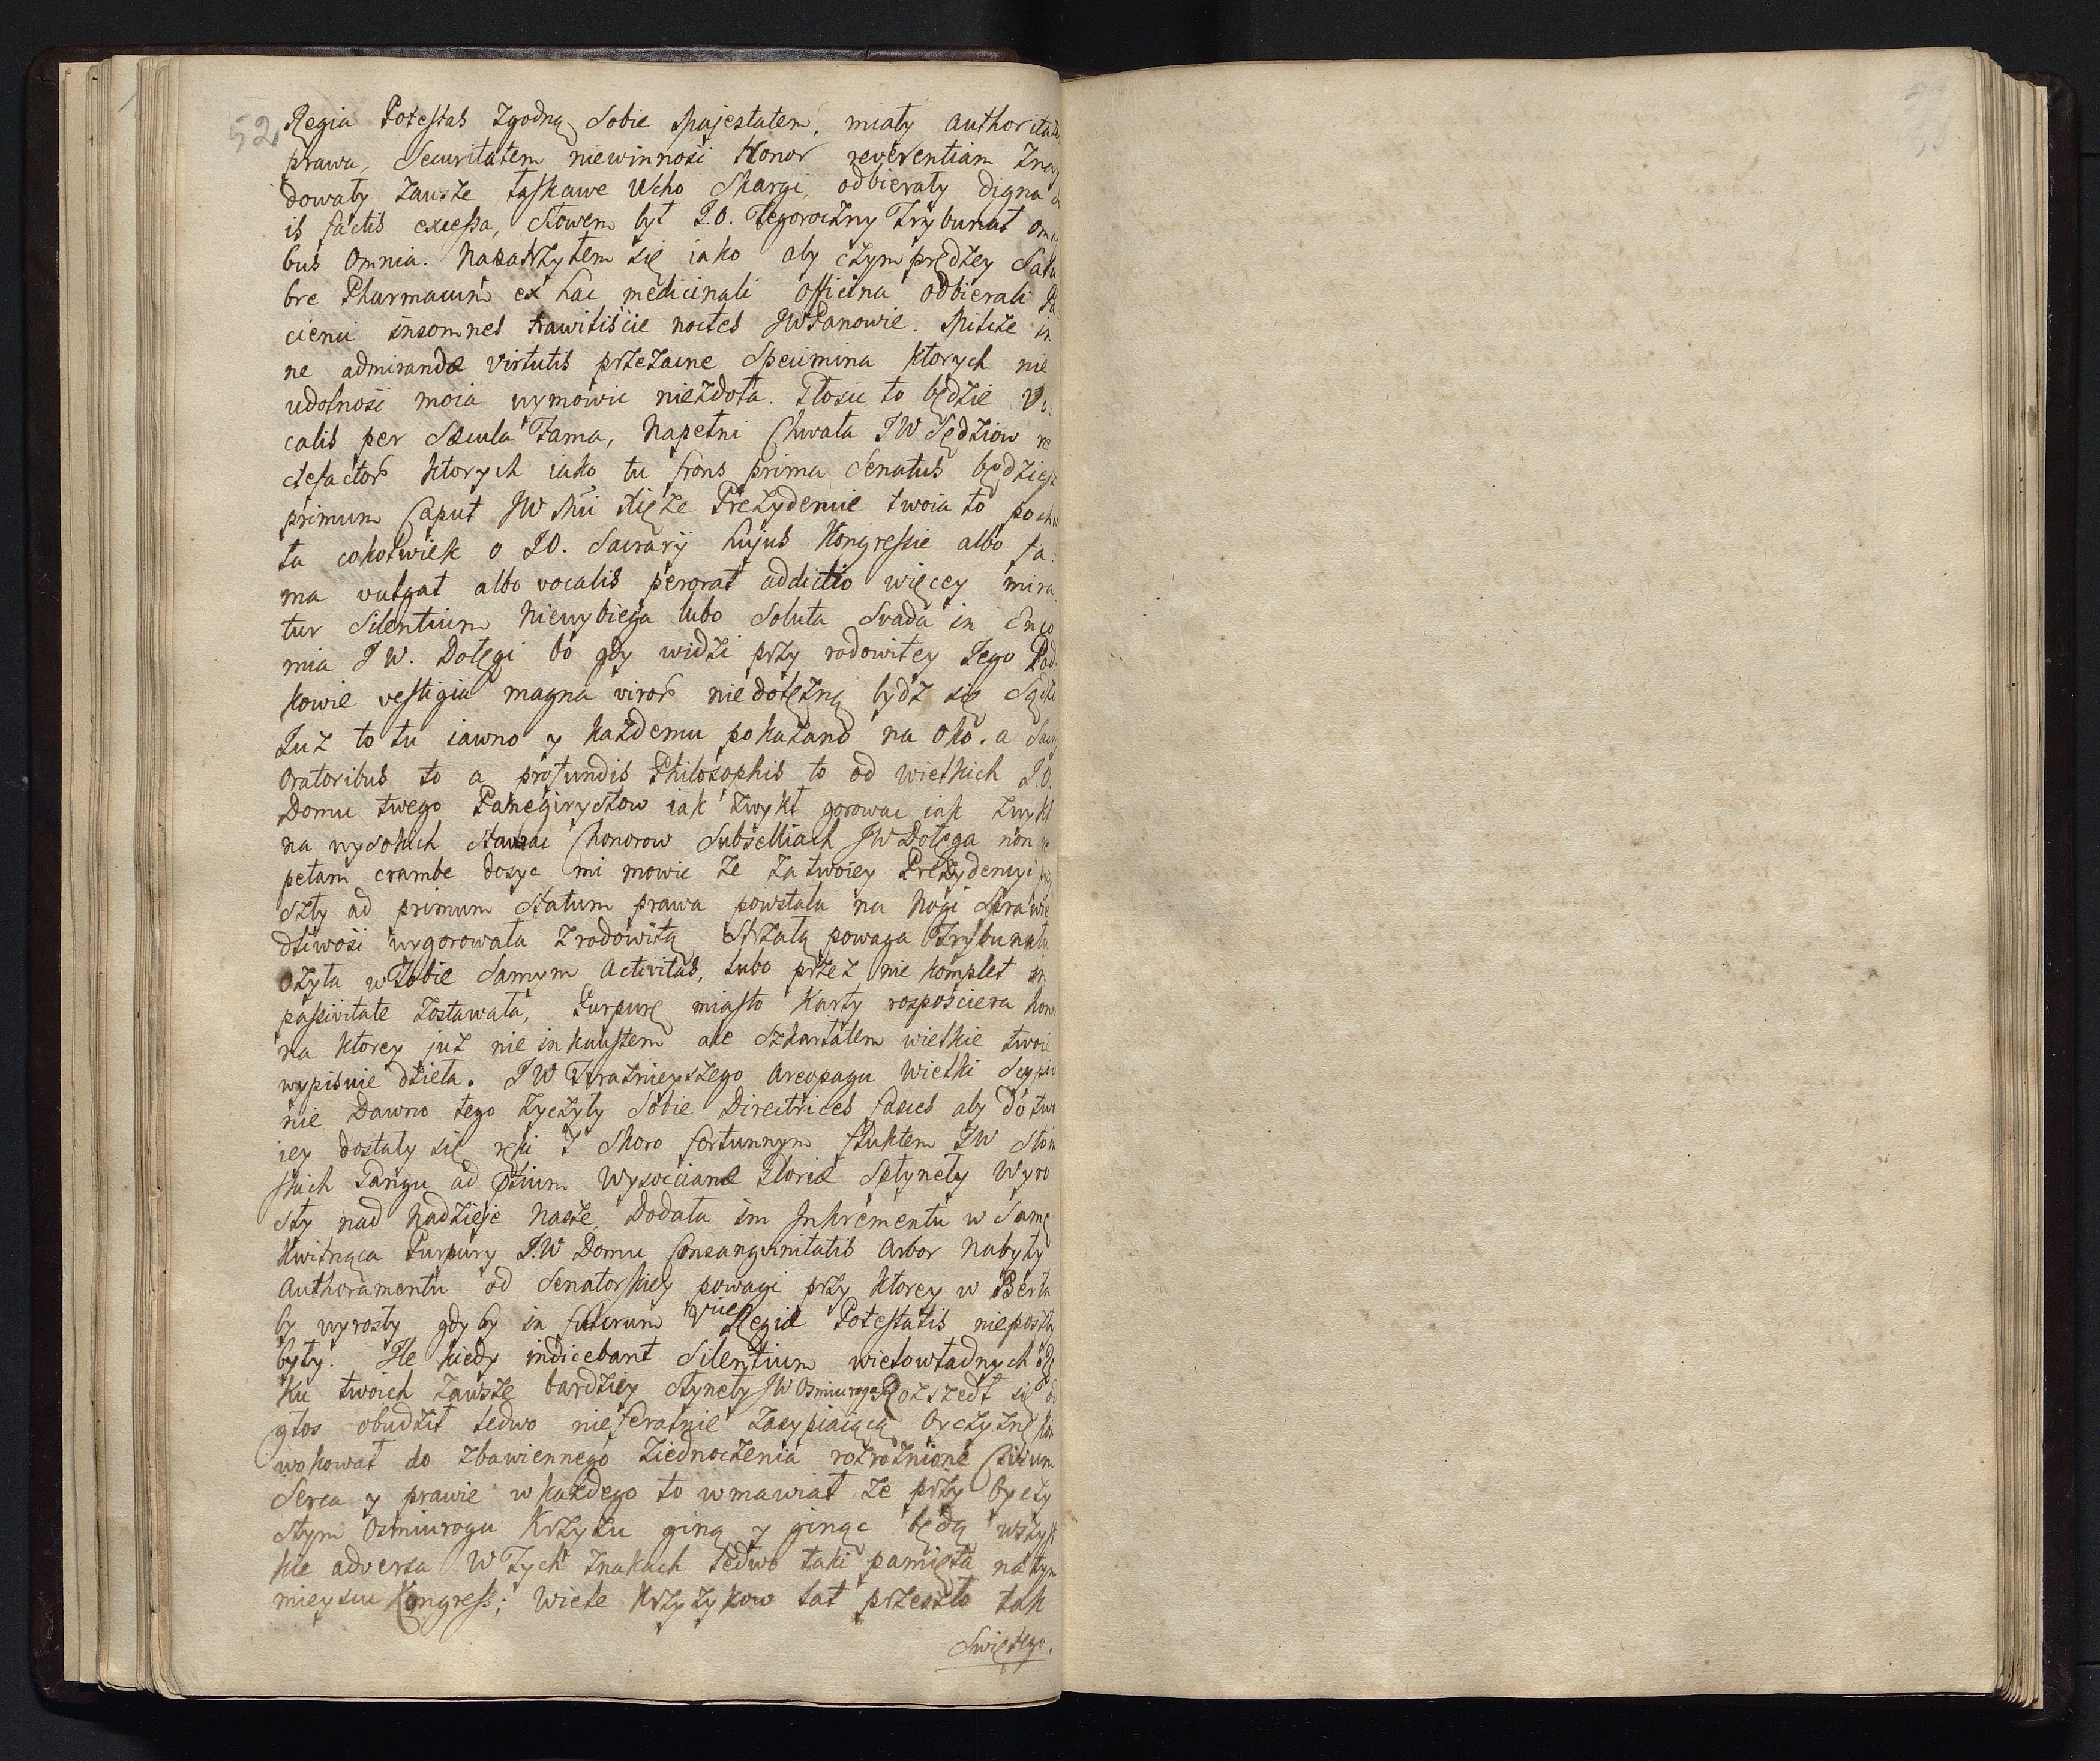 52
Regia Potestas zgodną Sobie Majestatem, miały authoritatem
prawa, Securitatem niewinność Honor reverentiam zney
dowały zawsze łaskawe Ucho Skargi, odbierały digna
is factis excessa, słowem był J.O. Tegoroczny Trybunał omni
bus omnia. Napatrzyłem się iako aby czym prędzey Salu
bre Pharmacum ex hac medicinali officina odbierali Pa
cienci insomnes trawiliście noctes JWPanowie. Milczę in
ne admirandæ virtutis przezacne Specimina ktorych nie
udolność moia wymowic niezdoła. Głosic to będzie Vo:
calis per Sæcula Fama, Napełni Chwała JW Sędziow re
ctefactor ktorych iako tu frons prima Senatus będziesz
primum Caput JW Xię Prezydencie twoia to pochwa
ła cokolwiek o JO. Sacrarij hujus Kongressie albo fa:
ma vulgat albo vocalis perorat addictio więcey mira
tur Silentium Niewybiega lubo Soluta Svada in Enco
mia J W. Dołęgi bo gdy widzi przy rodowitey Jego Pod
kowie vestigia magna viror niedołężną bydz się Sądzi
Juz to tu iawno y kazdemu pokazano na oko. a Sacris
Oratoribus to a profundis Philosophis to od wielkich J.O.
Domu twego Panegirystow iak zwykł gorowac iak zwykł
na wysokich stawac Chonorow Subselliach JW Dołęga non re
petam crambe dosyc mi mowic ze za twoiey Prezydencyi
szły ad primum Statum prawa powstała na Nogi Sprawie
dliwość wygorowała z rodowitą Strzałą powaga Trybunału
Ożyła w Tobie Samym Activitas, lubo przez nie komplet in
passivitate zostawała, Purpurę miasto Karty rozpościera
na ktorey już nie inkaustem ale Szkarłatem wielkie twoie
wypisuie dzieła. J W Teraznieyszego Areopagu Wielki Scypio
nie Dawno tego życzyły Sobie Directrices fasces aby do two
iey dostały się ręki I Skoro fortunnym fluktem JW Słoń
skich Gangu ad Ostium Wysocciane Gloriæ Spłynęły Wyro
sły nad Nadzieje Nasze, Dodała im Inkrementu w Samę
Kwitnąca Purpury J.W Domu Consangvinitatis Arbor Nabyły
Authoramentu od Senatorskiey powagi przy ktorey w Berła
by wyrosły gdy by in futurum Vice Regiæ Potestatis nieposzły
były. Ile kiedy indicebant Silentium wielowładnych
Ku twoich zawsze bardziey słynęły JW Osmiuroga Rozszedł się
głos obudził ledwo nie zasypiaiącą Oyczyznę
wokował do zbawiennego ziednoczenia rozroznione Civium
Serca y prawie w kazdego to wmawiał ze przy Oyczy
stym Osmiurogu Krzyżu giną y ginąc będą wszyst
kie adversa W Tych znakach ledwo taki pamięta na tym
mieyscu Kongress; Wiele Krzyzykow lat przeszło tak
Swiętego.